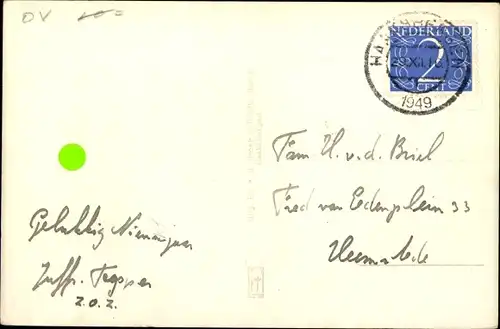 OV
NEDERLAND
2
CENT
1949
Fam H. v. d. Briel
Fred van Eedenplein 33
Heemstede
Gelukkig Nieuwjaar
Juffr.
z.o.z.